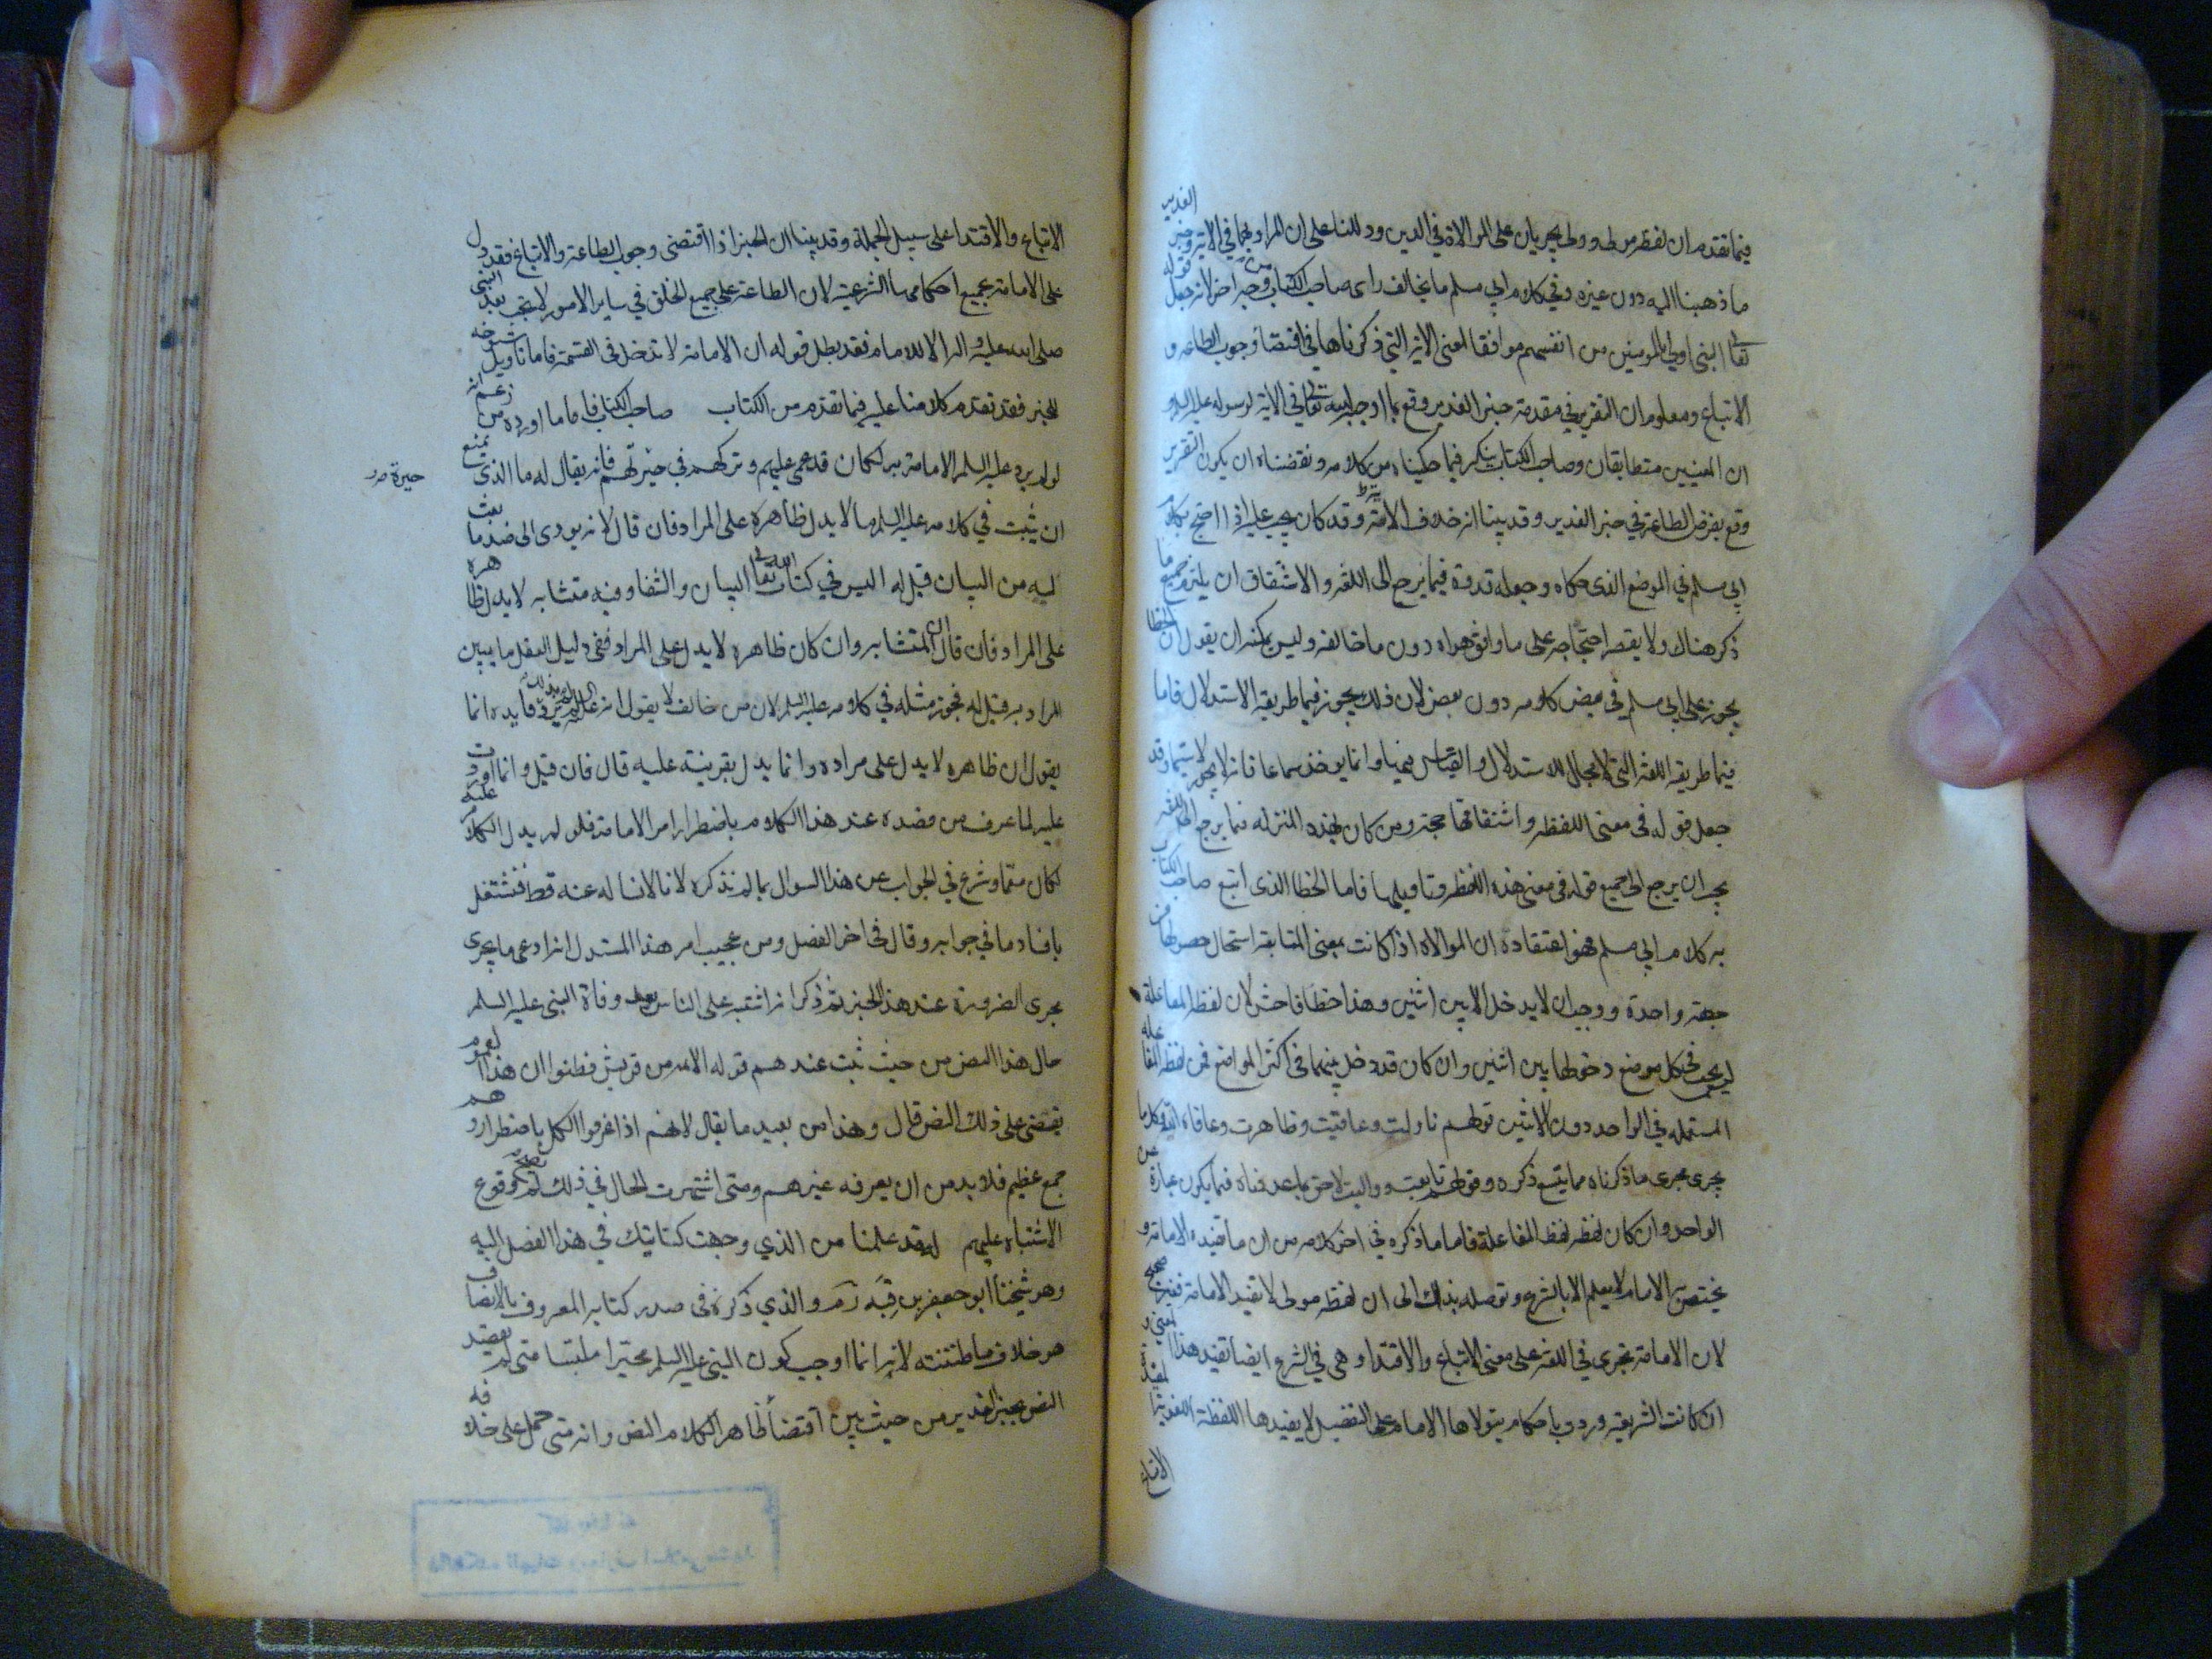 فيما تقدم ان لفظة من ط وولي يجريان على الموالاة في الدين ودللنا على ان المراد بهما في الاية وخبر الغدير
ما ذهبنا اليه دون غيره وفي كلام ابي مسلم ما يخالف راى صاحب الكتاب من وجه اخر لانه جعل قوله
تعالى النبي اولى بالمومنين من انفسهم موافقا لمعنى الاية التي ذكرناها في اقتضا وجوب الطاعة و
الاتباع ومعلوم ان التقرير في مقدمة خبر الغدير وقع بما اوجبه الله تعالى في الاية لرسوله عليه السلم
ان المعنيين متطابقان وصاحب الكتاب ينكر فيما حكيناه من كلامه ونقضناه ان يكون التقرير
وقع بفرض الطاعة في خبر الغدير وقد بينا انه خلاف الامة وقد كان يجب عليه اذا احتج بكلام
ابي مسلم في الموضع الذي حكاه وجعله قدوة فيما يرجع الى اللغة والاشتقاق ان يلتزم جميع ما
ذكر هناك ولا يقصر احتجاجه على ما وافق هواه دون ما خالفه وليس يمكنه ان يقول ان الخطا
يجوز على ابي مسلم في بعض كلامه دون بعض لان ذلك يجوز فيما طريقه الاستدلال فاما
فيما طريقه اللغة التي لا مجال للاستدلال والقياس فيها وانما يوخذ سماعا فانه لا يجوز لا سيما وقد
جعل قوله في معنى اللفظة واشتقاقها حجة ومن كان بهذه المنزلة فيما يرجع الى اللغة
يجب ان يرجع الى جميع قوله في معنى هذه اللفظة وتاويلها فاما الخطا الذي اتبع صاحب الكتاب
به كلام ابي مسلم فهو اعتقاده ان الموالاة اذا كانت بمعنى المتابعة استحال حصولها من
جهة واحدة ووجب ان لا يدخل الا بين اثنين وهذا خطا فاحش لان لفظ المفاعلة
ليس يجب في كل موضع دخولها بين اثنين وان كان قد دخل بينهما في اكثر المواضع فمن لفظ المفاعلة
المستعملة في الواحد دون الاثنين قولهم ناولت وعاقبت وظاهرت وعافاه الله وكلما
يجرى مجرى ما ذكرناه مما يتسع ذكره وقولهم تابعت وواليت لاحق بما عددناه فيما يكون عبارة عن
الواحد وان كان لفظه لفظ المفاعلة فاما ما ذكره في اخر كلامه من ان ما تفيده الامامة و
يختص به الامام لا يعلم الا بالشرع وتوصله بذلك الى ان لفظة مولى لا تفيد الامامة فغير صحيح
لان الامامة تجرى في اللغة على معنى الاتباع والاقتدا وهي في الشرع ايضا تفيد هذا المعنى و
ان كانت الشريعة وردت باحكام يتولاها الامام على التفصيل لا يفيدها اللفظة اللغوية المفيدة
الاتباع
الاتباع والاقتدا على سبيل الجملة وقد بينا ان الخبر اذا اقتضى وجوب الطاعة والاتباع فقد دل
على الامامة بجميع احكامها الشرعية لان الطاعة على جميع الخلق في ساير الامور لا تجب بعد النبي
صلى الله عليه واله الا للامام فقد بطل قوله ان الامامة لا تدخل في القسمة فاما تاويل شيوخه
للخبر فقد تقدم كلامنا عليه فيما تقدم من الكتاب صاحب الكتاب فاما ما اورده من زعم انه
لو لم يرد عليه السلم الامامة به لكان قد عمى عليهم وتركهم في حيرتهم فانه يقال له ما الذى يمنع
حيرة صر
ان يثبت في كلامه عليه السلم ما لا يدل ظاهره على المراد فان قال لانه يودى الى ضد ما بعث
ليه من البيان قيل له اليس في كتاب الله تعالى البيان والشفا وفيه متشابه لا يدل ظاهره
على المراد فان قال ان المتشابه وان كان ظاهره لا يدل على المراد ففي دليل العقل ما يبين
المراد به قيل له فجوز مثله في كلامه عليه السلم لان من خالف لا يقول انه فايده انما
يقول ان ظاهره لا يدل على مراده وانما يدل بقرينة عليه قال فان قيل وانما اوردت
عليه لما عرف من قصده عند هذا الكلام باضطرار امر الامامة فلو لم يدل الكلام عليه
لكان معميا وشرع في الجواب عن هذا السوال بما لم نذكره لانا لا نساله عنه قط فنشتغل
بافساد ما في جوابه وقال في اخر الفصل ومن عجيب امر هذا المستدل انه ادعى ما يجرى
مجرى الضرورة عند هذا الخبر ثم ذكر انه اشتبه على الناس بعد وفاة النبي عليه السلم
حال هذا النص من حيث ثبت عندهم قوله الايمه من قريش فظنوا ان هذا العموم
يقتضى على ذلك النص قال وهذا من بعيد ما يقال لانهم اذا عرفوا الكل باضطرار وهم
جمع عظيم فلا بد من ان يعرفه غيرهم ومتى اشتهرت الحال في ذلك لم وقوع
الاشتباه عليهم له قد علمنا من الذي وجهت كتابتك في هذا الفصل اليه
وهو شيخنا ابو جعفر بن قبة رم والذي ذكره في صدر كتابه المعروف بالانصاف
هو خلاف ما ظننته لانه انما اوجب كون النبي عليه السلم محيرا ملبسا متى لم يقصد
النص بخبر الغدير من حيث بين اقتضا ظاهر الكلام النص وانه متى حمل على خلافه